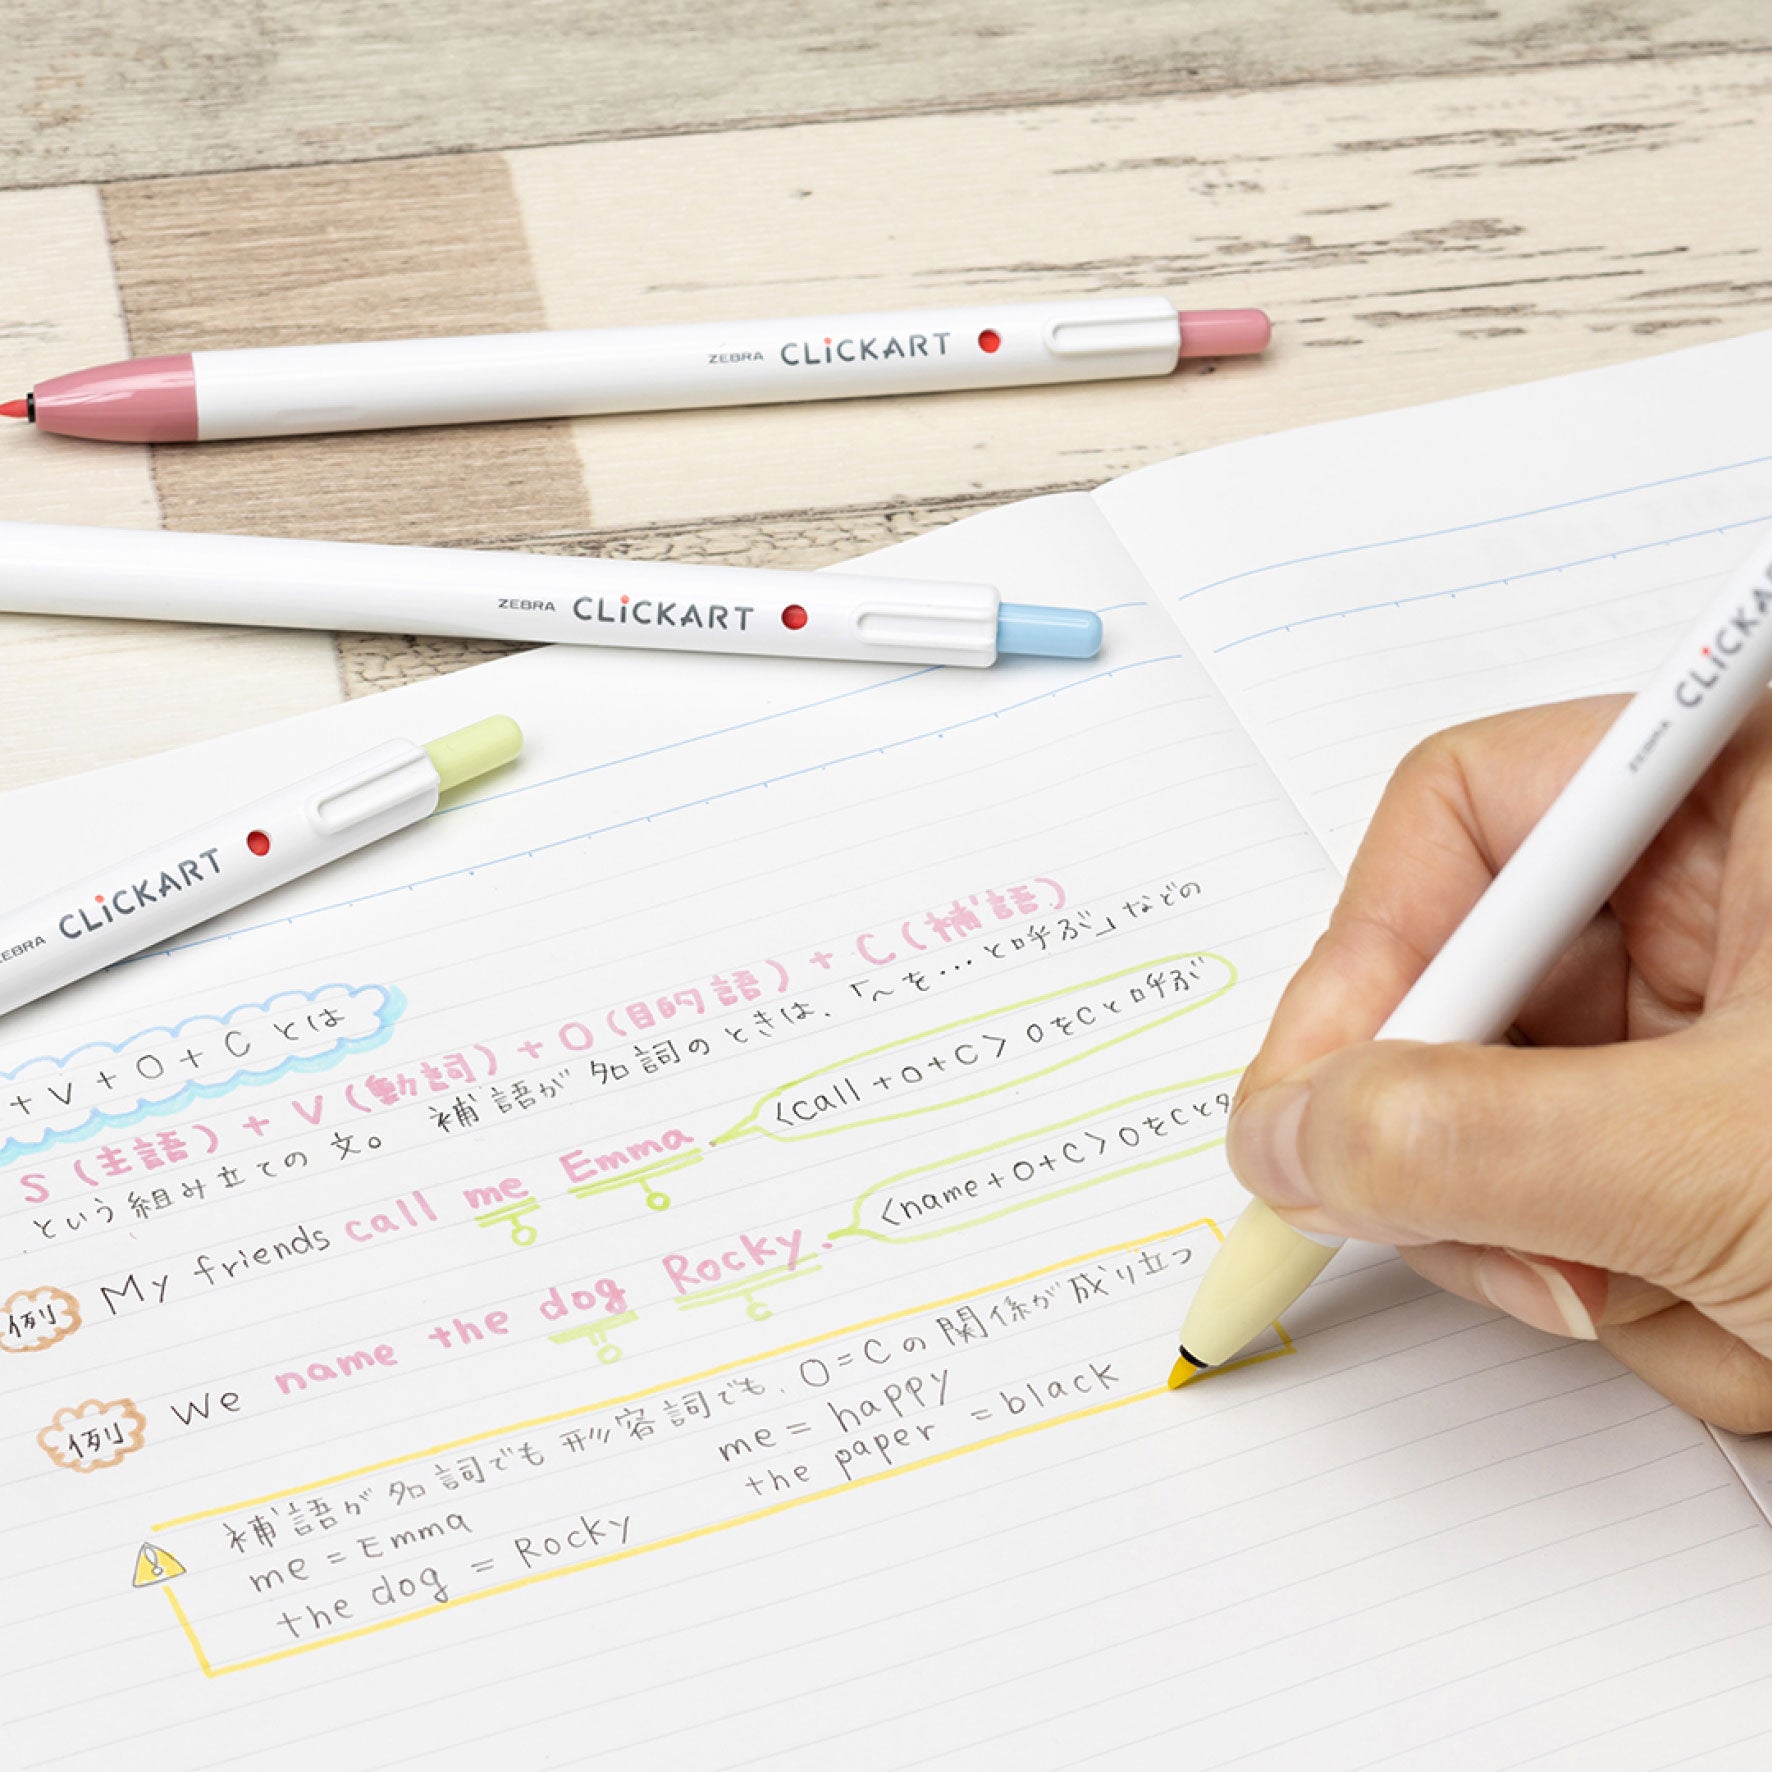 ZEBRA CLiCKART
ZEBRA CLiCKART
ZEBRA CLiCKART
ZEBRA CLiCKA
+ V + O + C とは
S (主語) + V (動詞) + O (目的語) + C (補語)
という組み立ての文。 補語が名詞のときは、「〜を…と呼ぶ」などの
例 My friends call me Emma.
O C
<call + O + C> OをCと呼ぶ
例 We name the dog Rocky.
O C
<name + O + C> OをCと名
補語が名詞でも形容詞でも、O = C の関係が成り立つ
me = Emma
me = happy
the dog = Rocky
the paper = black